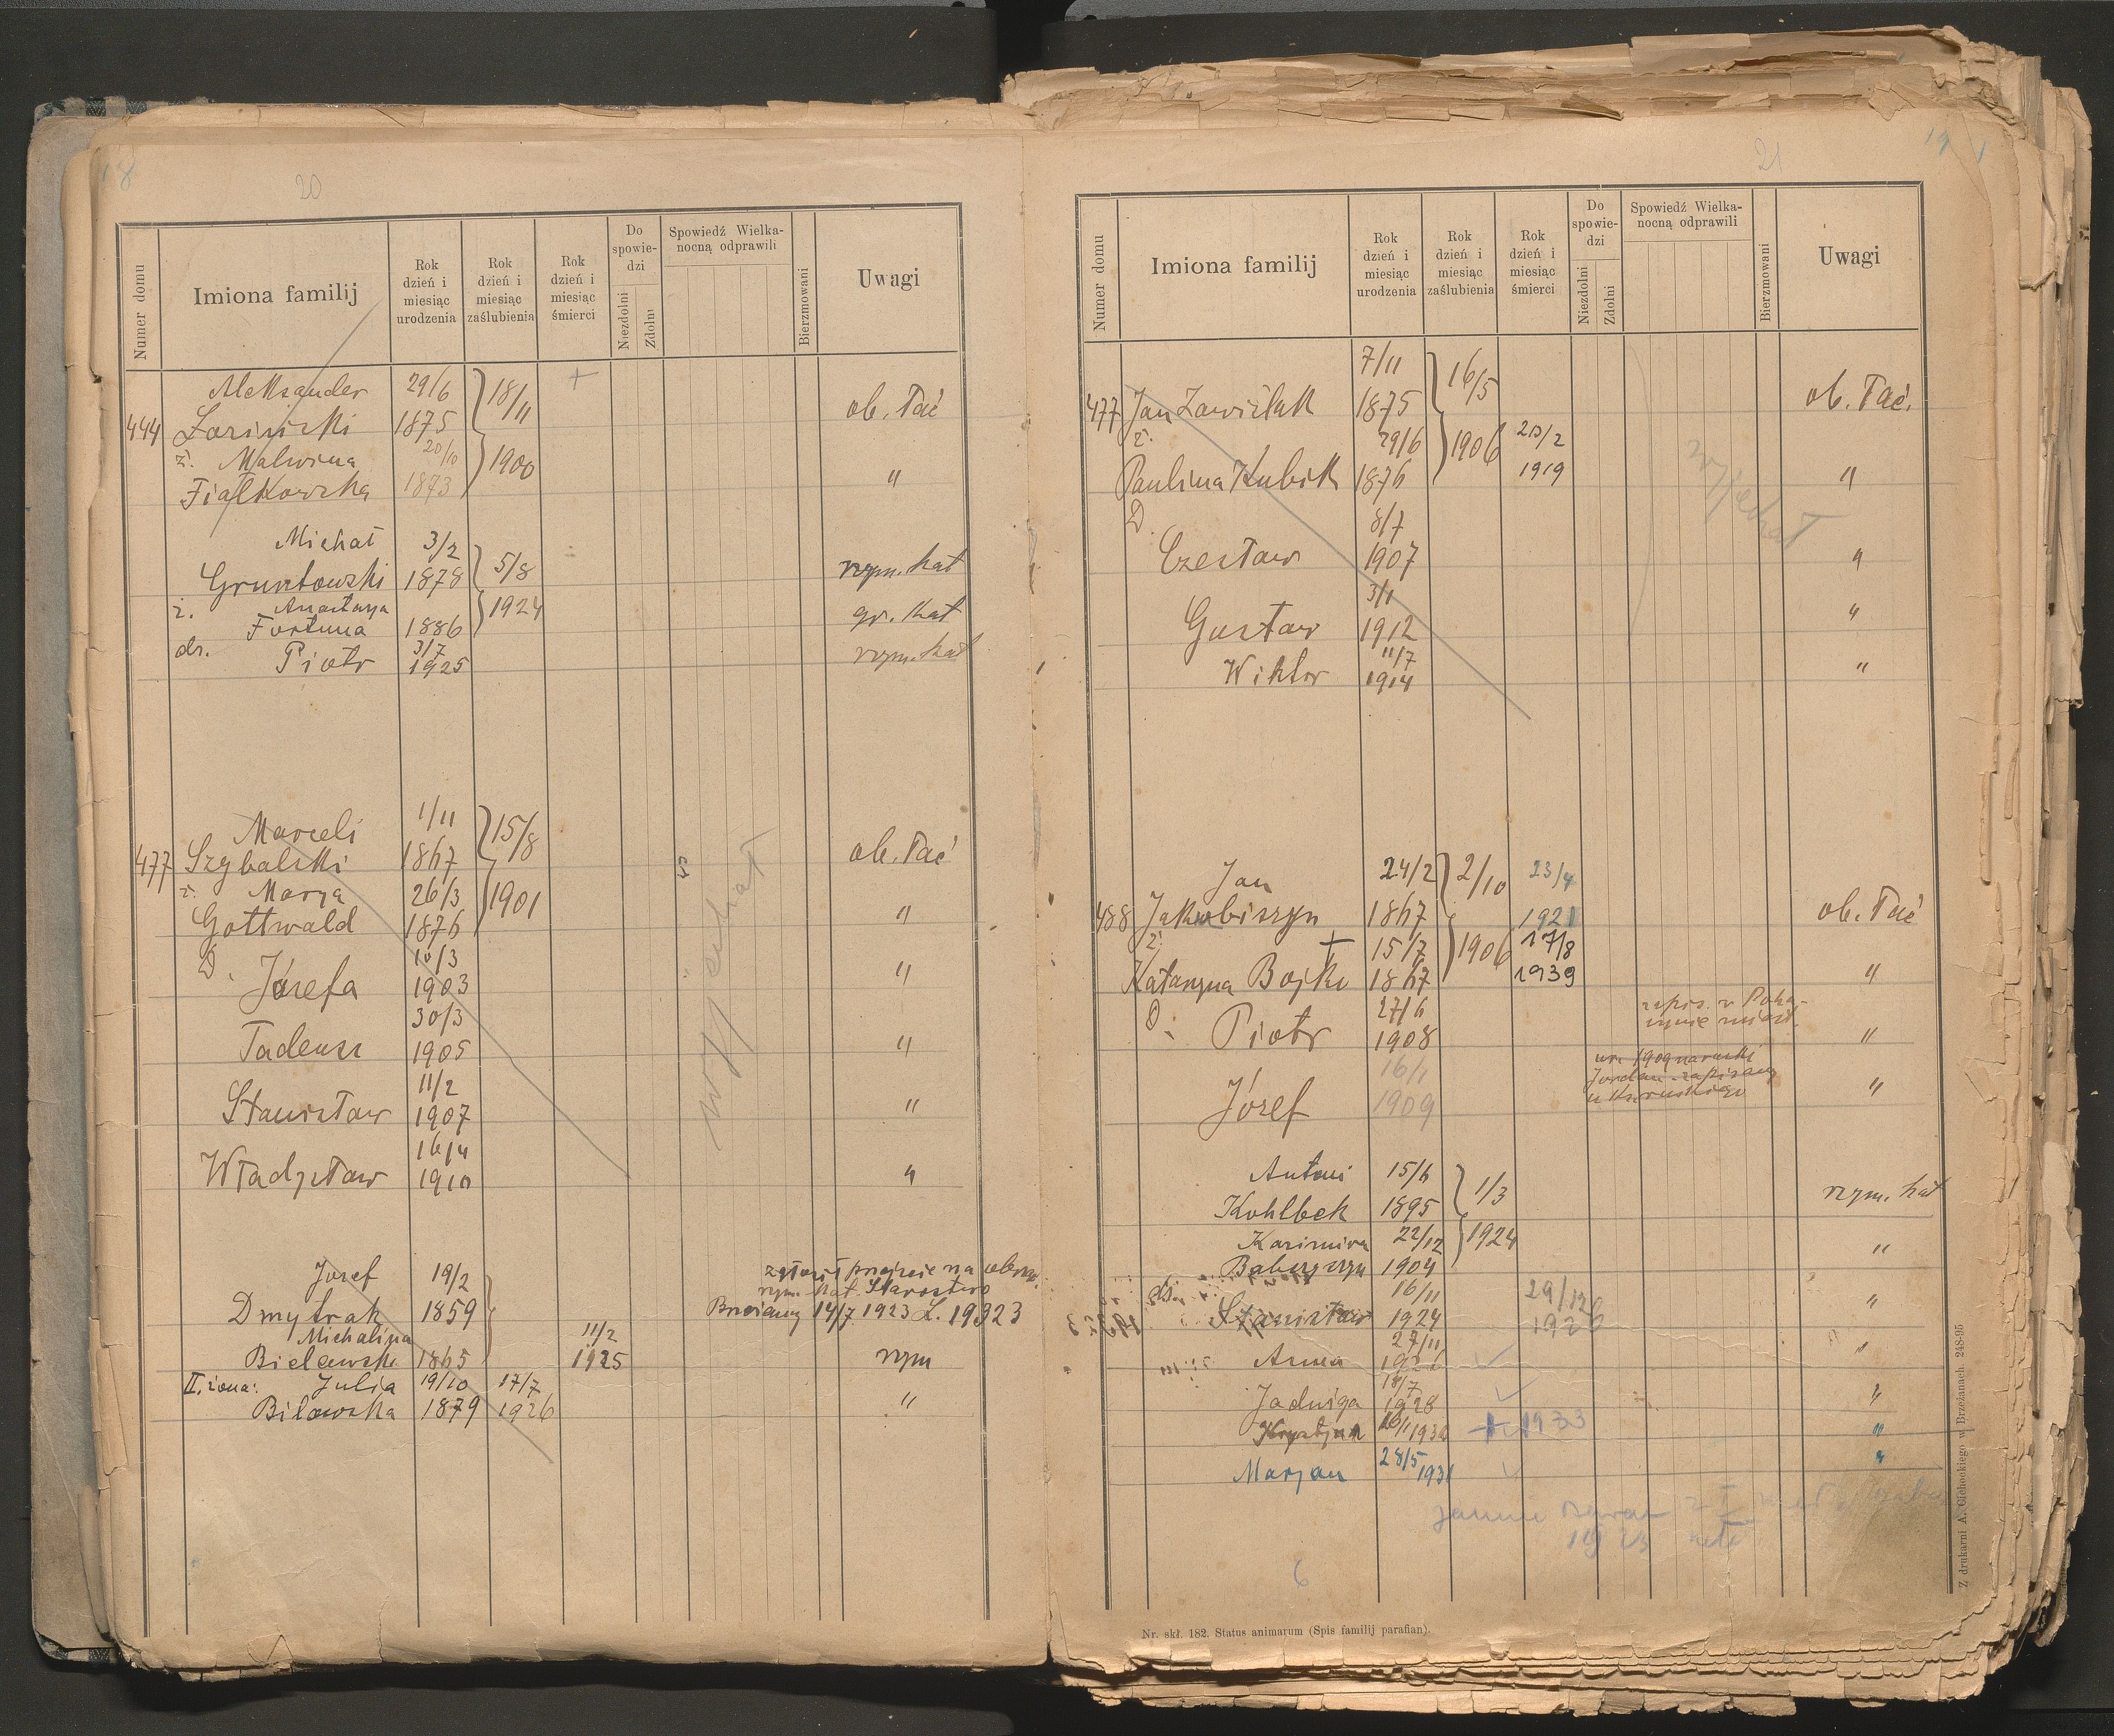 18
20
Numer domu
Imiona familij
Rok dzień i miesiąc urodzenia
Rok dzień i miesiąc zaślubienia
Rok dzień i miesiąc śmierci
Do spowiedzi
Niezdolni
Zdolni
Spowiedź Wielkanocną odprawili
Bierzmowani
Uwagi
Aleksander 29/6 18/11 +
444 1875 ob. łać
ż. Malwina 20/10 1900
Fiałkowska 1873 "
Michał 3/2
Gruntowski 1878 5/8 rzym. kat
ż. Anastazya 1924 gr. kat
Fortuna 1886
dz. Piotr 3/7 1925 rzym. kat
Marceli 1/11 15/8
477 Szybalski 1867 ob. łać
ż. Marya 26/3 1901
Gottwald 1876 "
D. Józefa 10/3 1903 "
Tadeusz 30/3 1905 "
Stanisław 11/2 1907 "
Władysław 16/4 1910 "
wyjechał
Józef 19/2
Dmytrak 1859
zgłosił przejście na obrz.
rzym. kat. Starostwo
Brzeżany 14/7 1923 L. 19323
Michalina 11/2
1865 1925 rzym
II. żona: Julia 19/10 17/7
Bilawska 1879 1926 "
21
19
Numer domu
Imiona familij
Rok dzień i miesiąc urodzenia
Rok dzień i miesiąc zaślubienia
Rok dzień i miesiąc śmierci
Do spowiedzi
Niezdolni
Zdolni
Spowiedź Wielkanocną odprawili
Bierzmowani
Uwagi
7/11 16/5
477 Jan Zawiślak 1875 ob. łać.
ż. 29/6 1906 20/2
Paulina Kubik 1876 1919 "
D. 8/7
Czesław 1907 "
3/1
Gustaw 1912 "
11/7
Wiktor 1914 "
wyjechał
Jan 24/2 2/10 23/4
488 Jakubiszyn 1867 1921 ob. łać
ż. + 15/7 1906 17/8
Katarzyna Bojko 1867 1939 "
D. 27/6
Piotr 1908 "
16/1
Józef 1909 "
Antoni 15/6 1/3
Kohlbek 1895 rzym. kat
Kazimira 22/12 1924
1904 "
16/11 29/12
Stanisław 1924 1926 "
27/11
Anna "
18/7
Jadwiga 1928 "
Krystjan 1930 + 1933 "
Marjan 28/5 1931 "
6
Nr. skł. 182. Status animarum (Spis familij parafian).
Z drukarni A. Cichockiego w Brzeżanach 248-95